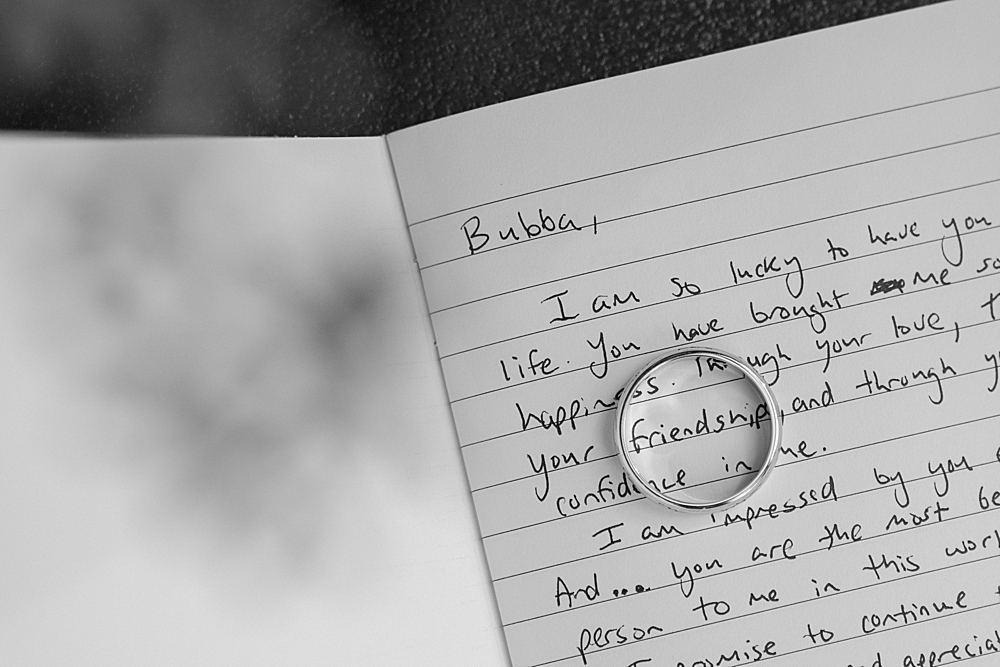 Bubba,
I am so lucky to have you
life. You have brought me so
happiness. Through your love,
your friendship, and through
confidence in me.
I am impressed by you
And.... you are the most
person to me in this
I promise to continue
and